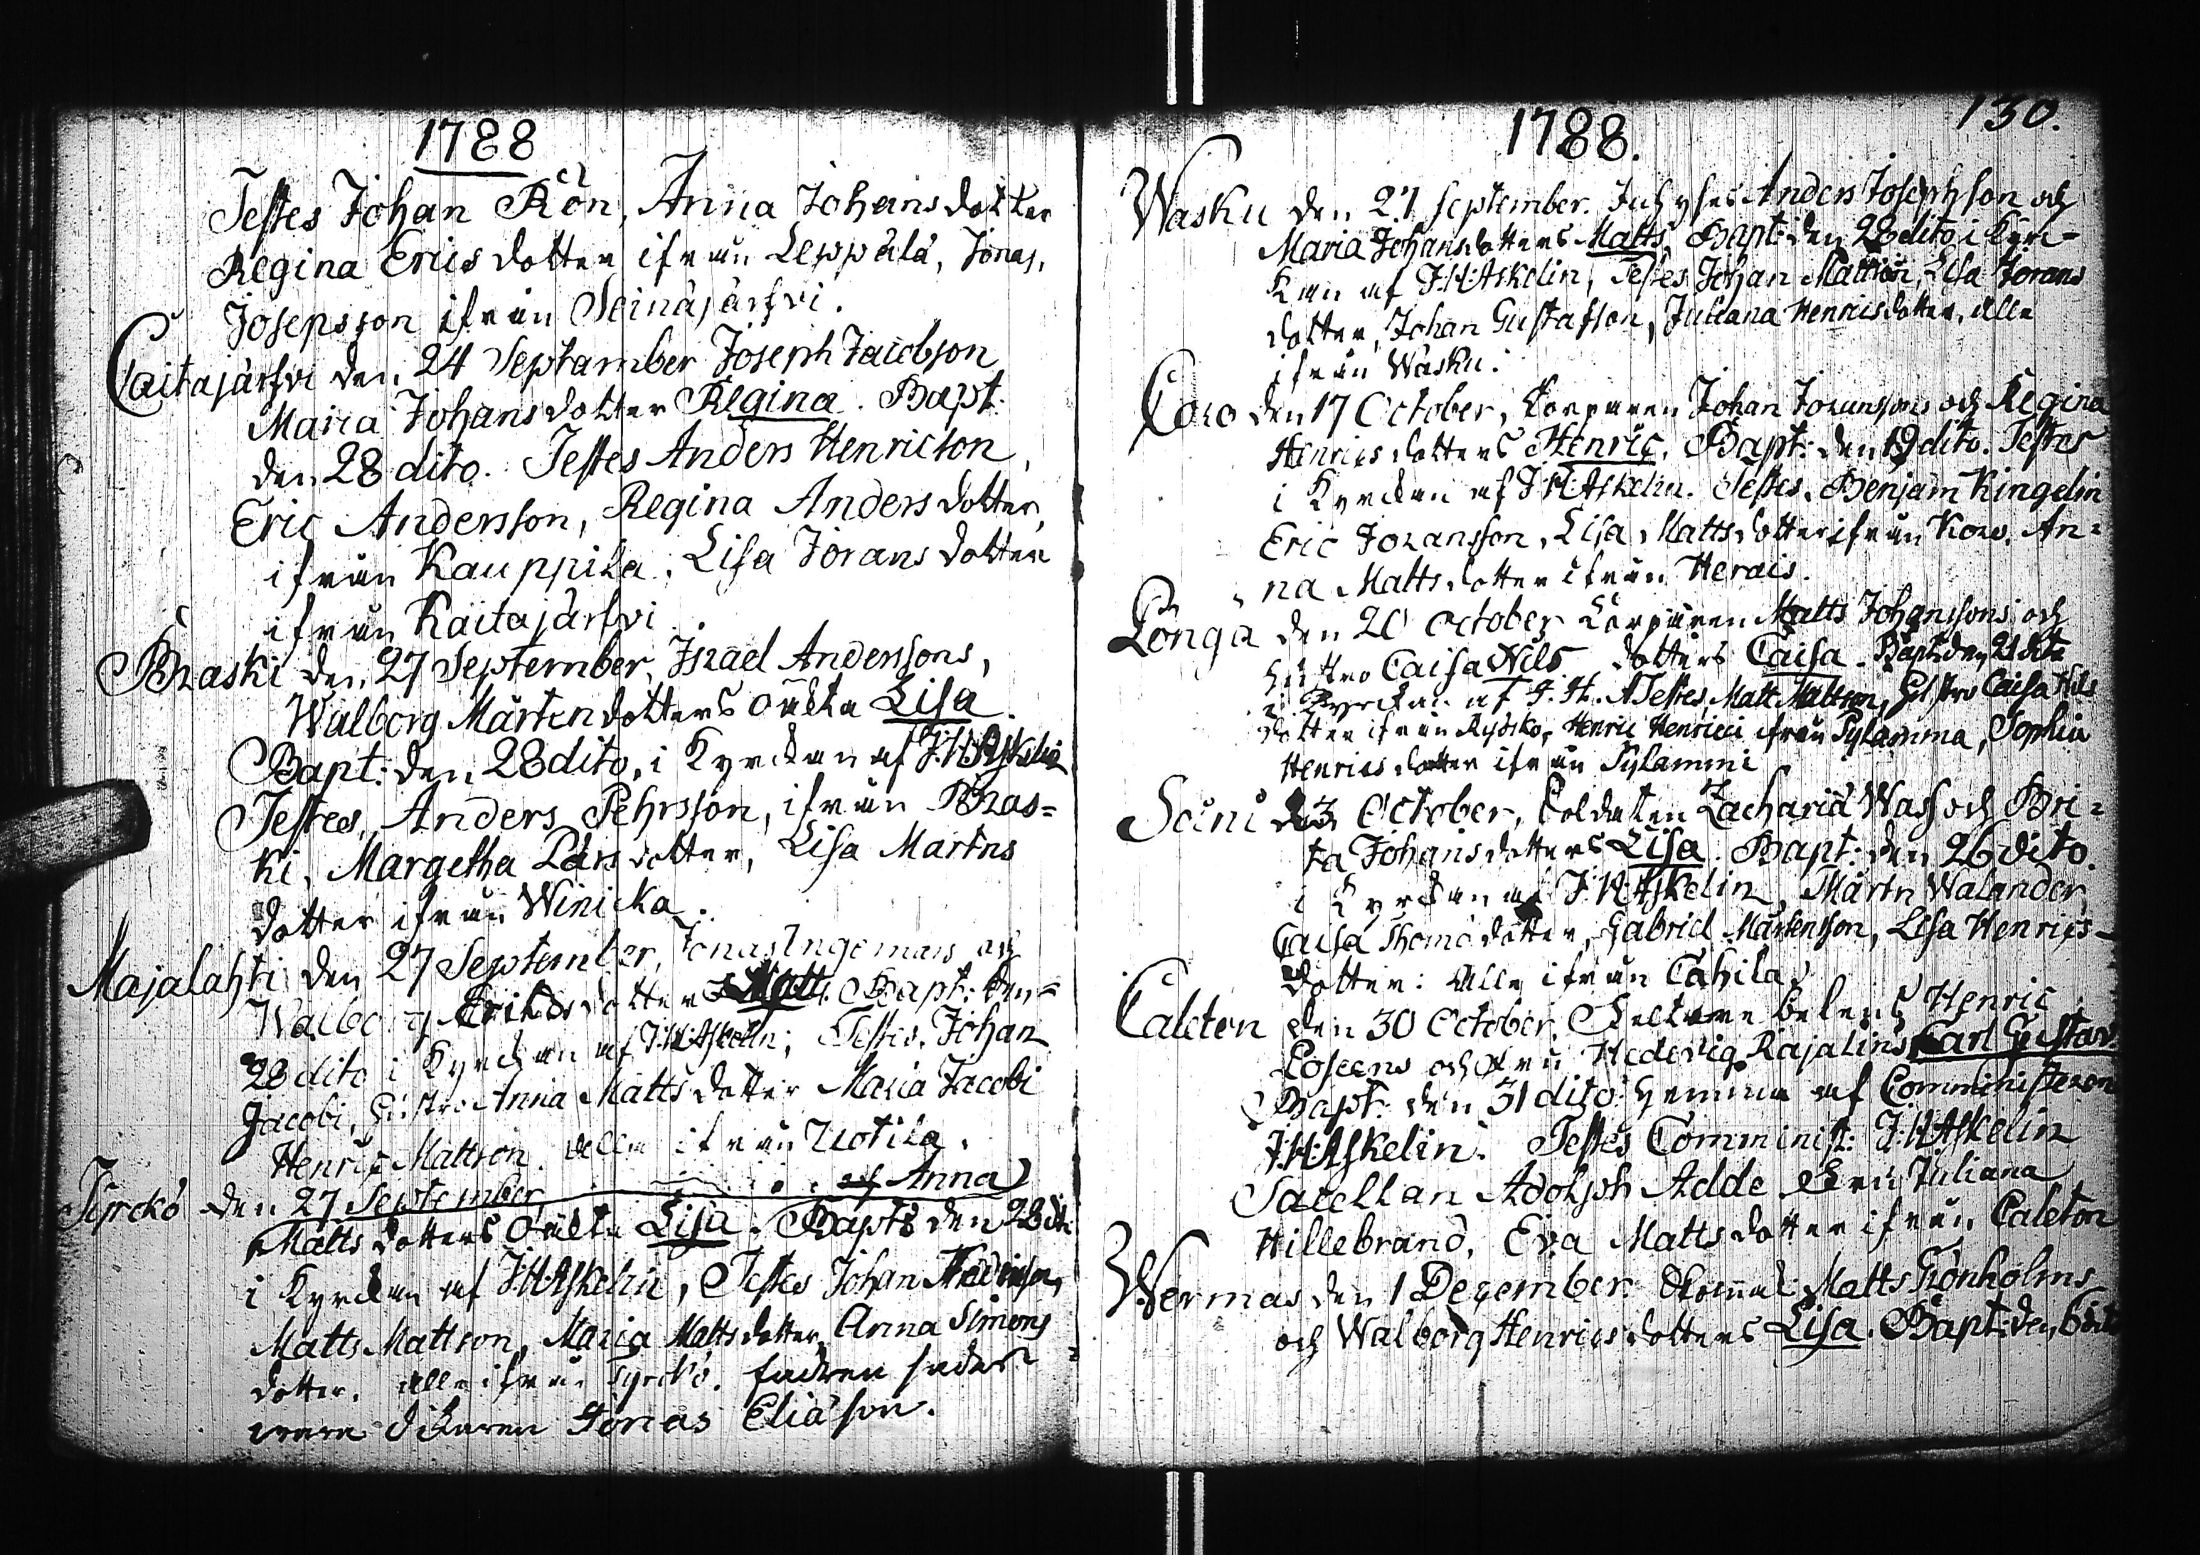 1788
Testes Johan Rön, Anna Johansdotter
Regina Ericsdotter ifrån Leppälä, Jonas,
Josepsson ifrån Seinäjärfvi.
Caitajärfvi den 24 September Joseph Jacobson
Maria Johansdotter Regina. Bapt.
den 28 dito. Testes Anders Henricson,
Eric Andersson, Regina Andersdotter,
ifrån Kauppila, Lisa Jöransdotter
ifrån Kaitajärfvi
Braski den 27 September, Israel Anderssons,
Walborg Mårtendotters oächta Lisa.
Bapt: den 28 dito, i Kyrckan af J:H:Askelin
Testes, Anders Pehrsson, ifrån Bras=
ki, Margetha Larsdotter, Lisa Martns
dotter ifrån Winicka.
Majalahti den 27 September, Jonas Ingemars och
Walborg Eriksdotters Matts. Bapt: den=
28 dito i Kyrckan af J:H:Askelin; Testes, Johan
Jacobi, hustro Anna Mattsdotter Maria Jacobi
Henric Mattson. alla ifrån Uotila.
Syrckö den 27 September af Anna
Matts dotters oächta Lisa. Bapt: den 28 dito
i Kyrckan af J:H:Askelin, Testes Johan
Matts Mattson, Maria Mattsdotter, Anna Simons
dotter. alla ifrån Syrckö. fadren sädes
vara Jonas Eliäson.
130.
1788.
Wasku den 27 september. Inhyses Anders Josephson och
Maria Johansdotters Matts, Bapt: den 28 dito i Kyrc=
kan af J:H:Askelin, Testes Johan Mattson, Lisa Jörans
dotter, Johan Gustafson, Juliana Henricsdotter, alla
ifrån Wasku.
Coro den 17 October, Torparen Johan Joransons och Regina
Henricsdotters Henric. Bapt: den 19 dito. Testes
i Kyrckan af J:H:Askelin. Testes. Benjam Ringelin
Eric Joransson, Lisa Mattsdotter ifrån Koro. An=
na Mattsdotter ifrån Herais.
Longa den 20 October Torparen Matts Johanssons och
hustro Caisa Nils dotters Caisa. Bapt: den 21 dito
i Kyrckan af J. H. A Testes, Matt Mattson, hustro Caisa Nils
dotter ifrån Rysko, Henric Henrici ifrån Pylamma, Sophia
Henricsdotter ifrån Pylammi
Seini den October, Soldaten Zacharia Wass och Bri=
ta Johansdotters Lisa. Bapt: den 26 dito.
i Kyrckan af J:H:Askelin, Martn Walander,
Caisa Thomådotter, Gabriel Mårtensson, Lisa Henrics-
dotter: alla ifrån Cahila
Caleton den 30 October, Henric
och fru Hedevig Rajalins Carl Gustav.
Bapt: den 31 dito hemma af Comministeren
J:H:Askelin. Testes Comminist: J:H:Askelin
Sacellan Adolph Adde Fru Juliana
Hillebrand, Eva Mattsdotter ifrån Caleton
Wermas den 1 December. Matts Grönholms
och Walborg Henricsdotters Lisa. Bapt: den 6 dito